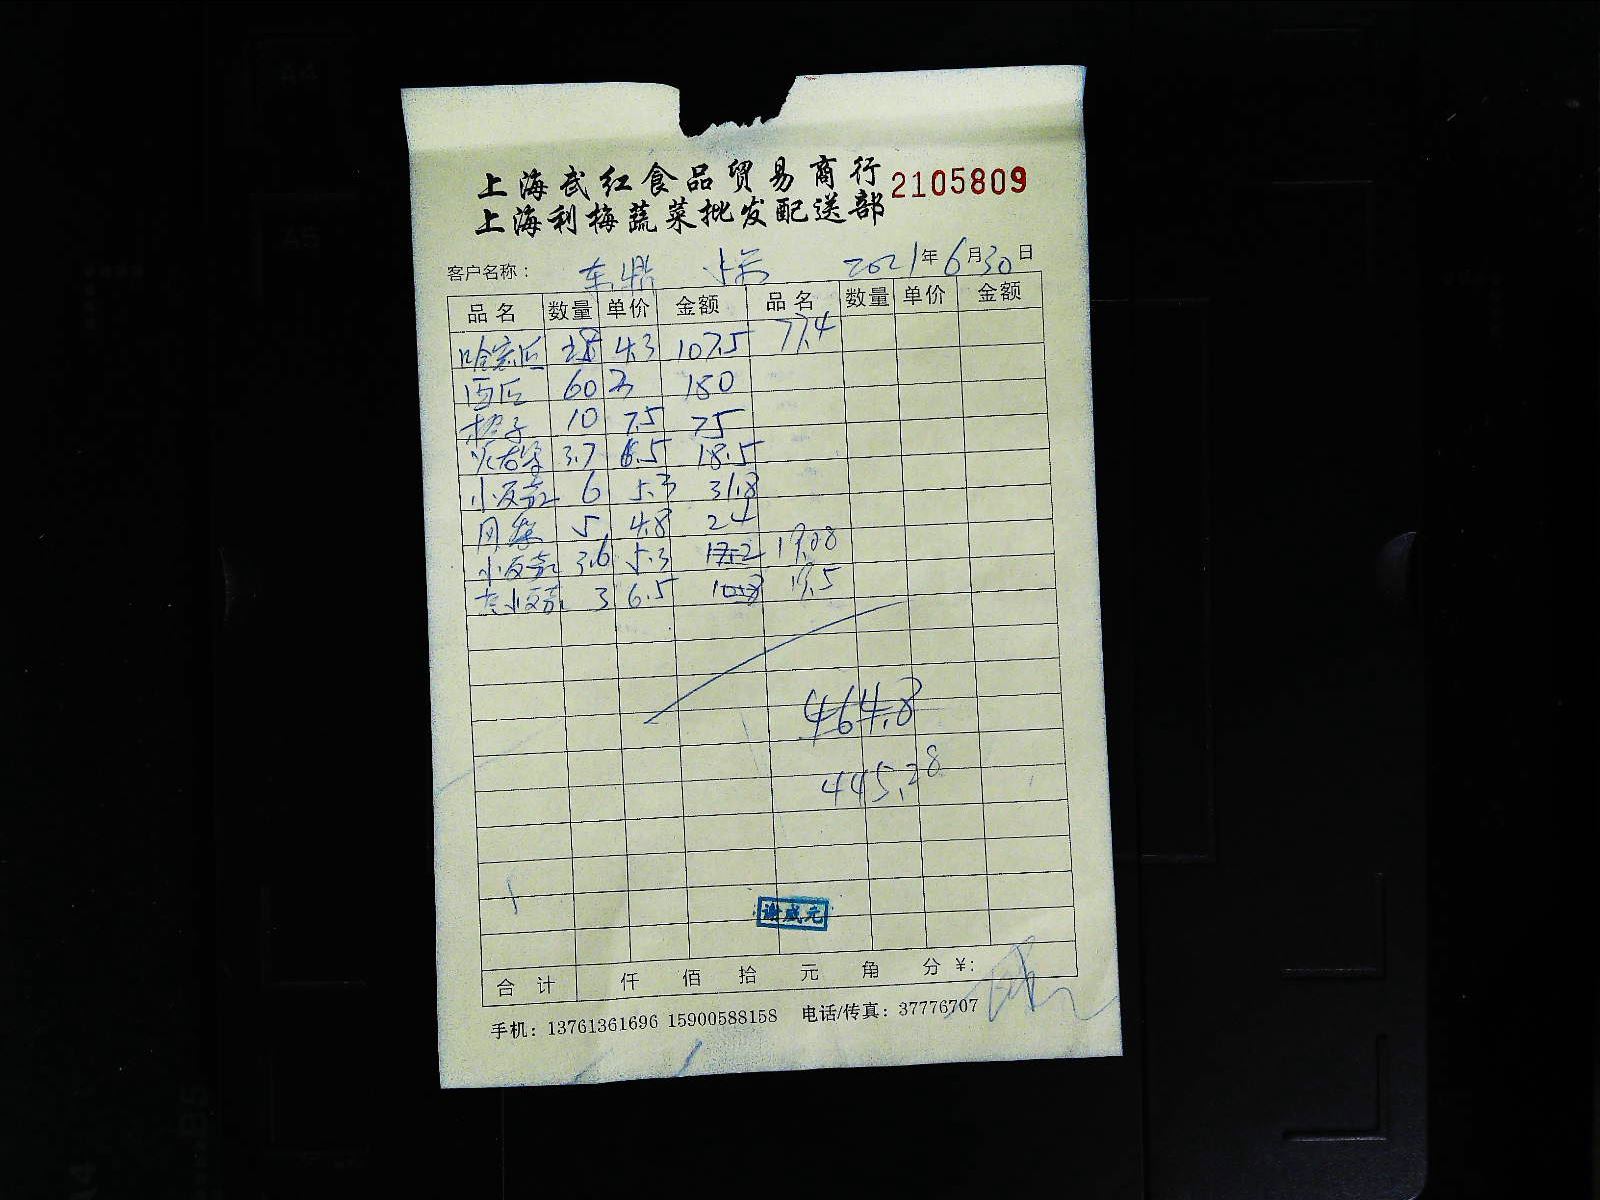 上海武红食品贸易商行 2105809
上海利梅蔬菜批发配送部
客户名称： 东鼎 2021年6月30日
品名 数量 单价 金额 品名 数量 单价 金额
哈密瓜 4.3 107.5 77.4
西瓜 60 3 180
桔子 10 7.5 75
3.7 6.5 18.5
小 6 5.3 31.8
5 4.8 24
小 3.6 5.3 17.2 19.08
小 3 6.5 19.5
464.8
445.28
谢成元
合计 仟 佰 拾 元 角 分 ¥:
手机：13761361696 15900588158 电话/传真：37776707